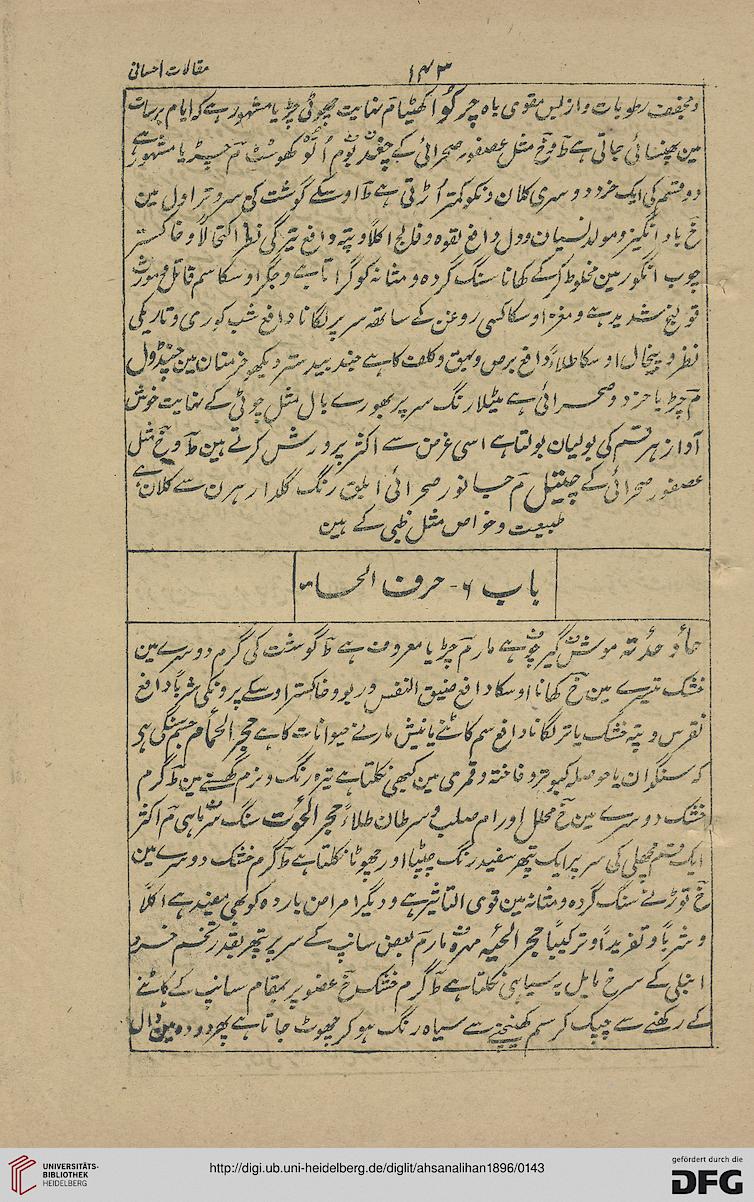 مقالات احسانی
۱۴۳
ومجفف رطوبات وازلیس مقوی باہ چرکوا کھٹیا م نہایت چھوٹی چڑیا مشہور ہے کہ ایام برسات
مین پھنسائی جاتی ہے ط و خ مثل عصفور صحرائی کے چغد بوم الو کھوسٹ م چڑیا مشہور ہے
دو قسم کی ایک خرد دوسری کلان دنکو کمتر اڑتی ہے ط اوسکے گوشت کی سرد تر اول مین
خ باد انگیز ومولد نسیان ودل دافع لقوہ وفالج اکلاً وپتہ دافع تیرگی نظر اکتحالاً وخاکستر
چوب انگور مین مخلوط کرکے کھانا سنگ گردہ ومثانہ کو گراتا ہے وجگر اوسکا سم قاتل ومورث
قولنج شدید ہے ومغز اوسکا کسی روغن کے ساتھ سر پر لگانا دافع شب کوری وتاریکی
نظر وپیخال اوسکا طلاءً دافع برص وبہق وکلف کا ہے جند بیدستر دیکھو خزمیان مین چنڈول
م چڑیا خرد وصحرائی ہے مٹیلا رنگ سر پر بھورے بال مثل چوٹی کے نہایت خوش
آواز ہر قسم کی بولیان بولتا ہے اسی غرض سے اکثر پرورش کرتے ہین ط و خ مثل
عصفور صحرائی کے چیتل م جانور صحرائی ابلق رنگ گلدار ہرن سے کلان ہے
طبیعت وخواص مثل ظبی کے ہین
باب ۶ - حرف الحاء
حدأۃ موش گیر م چڑیا معروف ہے ط گوشت کی گرم دوسرے مین
خشک تیسرے مین خ کھانا اوسکا دافع ضیق النفس وربو وخاکستر اوسکے پرونکی شرباً دافع
نقرس وپتہ خشک یا تر لگانا دافع سم کاٹنے یا نیش مارنے حیوانات کا ہے حجر الحمام م جسم سنگی ہے
کہ سنگدان یا حوصلہ کبوتر وفاختہ وقمری مین کبھی نکلتا ہے تیرہ رنگ ونرم گھسنے مین ط گرم
خشک دوسرے مین خ محلل اورام صلب وسرطان طلاءً حجر الحوت سنگ سر ماہی م اکثر
ایک قسم مچھلی کی سر پر ایک پتھر سفید رنگ چپٹا اور چھوٹا نکلتا ہے ط گرم خشک دوسرے مین
خ توڑنے سنگ گردہ ومثانہ مین قوی التاثیر ہے ودیگر امراض باردہ کو بھی مفید ہے اکلاً
وشرباً وتفریداً وترکیباً حجر الحیہ مہرہ مار م بعض سانپ کے سر پر پتھر بقدر تخم خرد
املی کے سرخ مایل بہ سیاہی نکلتا ہے ط گرم خشک خ عضو پر بمقام سانپ کے کاٹنے
کے رکھنے سے چپک کر سم کھینچنے سے سیاہ رنگ ہو کر چھوٹ جاتا ہے پھر دودہ مین ڈال
UNIVERSITÄTS-
BIBLIOTHEK
HEIDELBERG
http://digi.ub.uni-heidelberg.de/diglit/ahsanalihan1896/0143
gefördert durch die
DFG